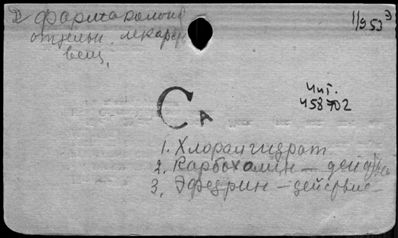 фармакологи
отдельн. лекарств
вещ.
1/953
Чит.
458702
Са
1. Хлоралгидрат
2. Карбохолин — действ
3. Эфедрин — действие